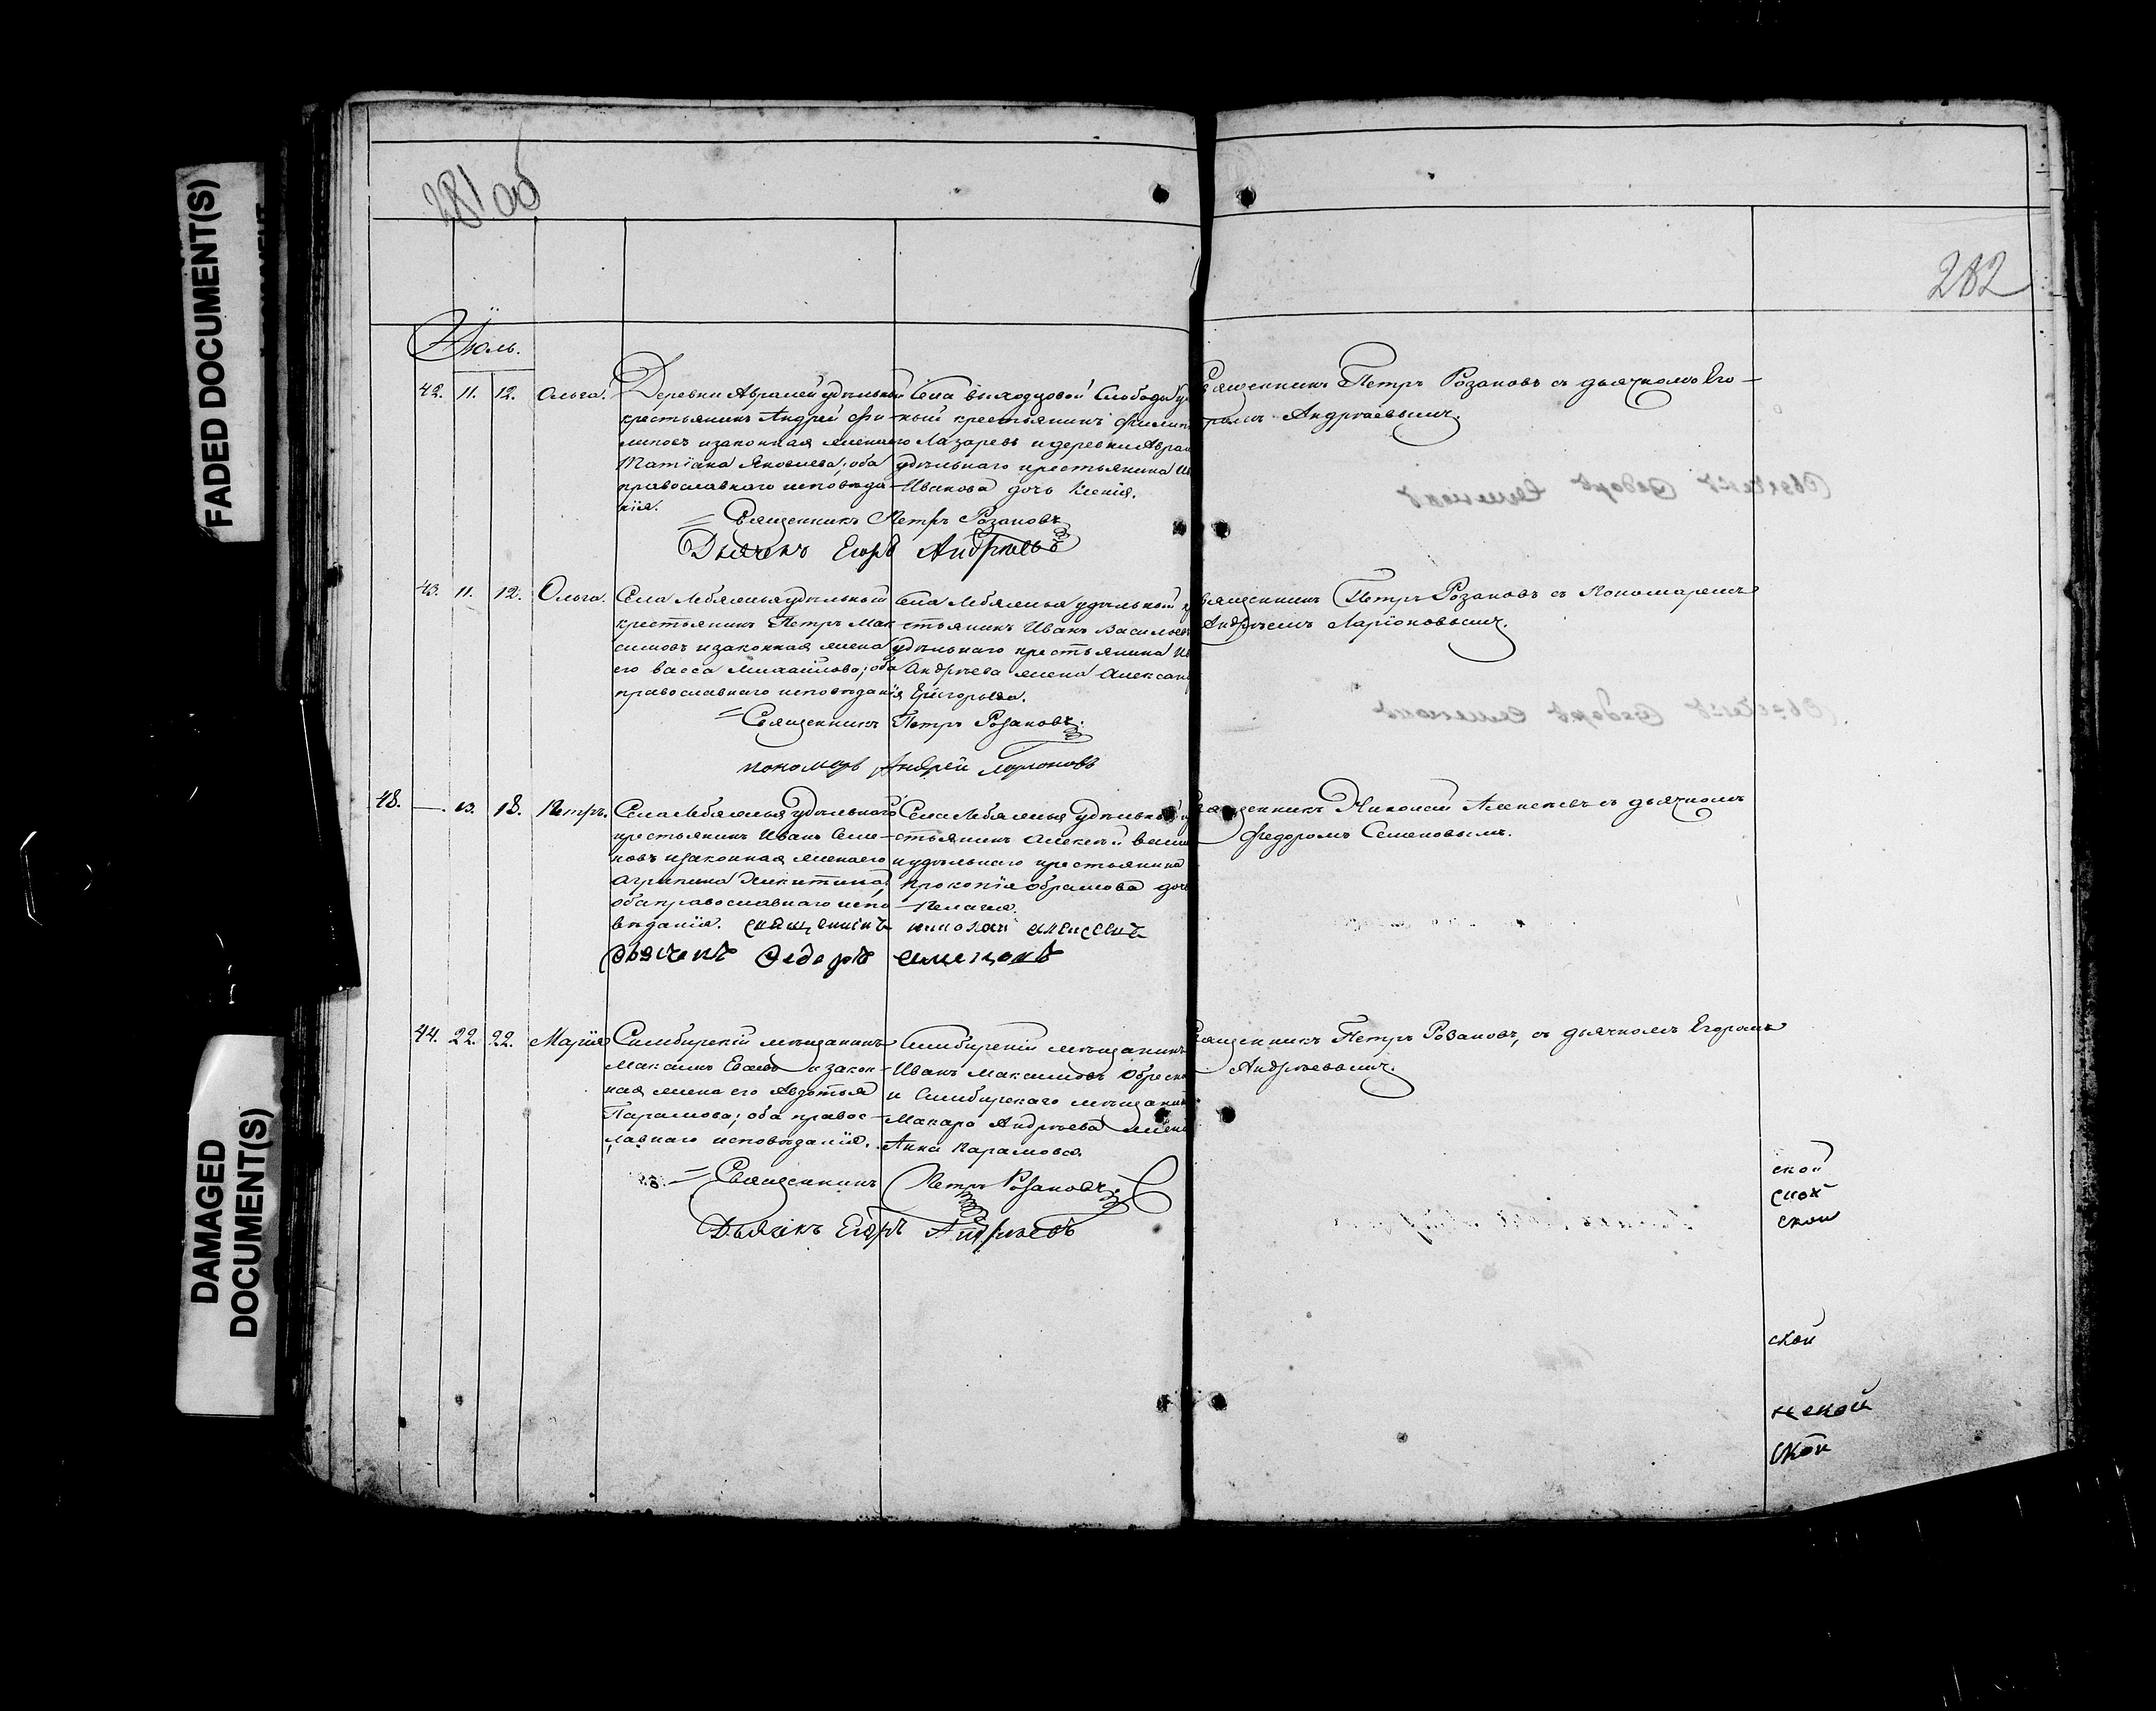 FADED DOCUMENT(S)
DAMAGED
DOCUMENT(S)
281 об
282
Июль.
42. 11. 12. Ольга.
Деревни Авралей удѣльный
крестьянинъ Андрей Фи-
липовъ и законная жена его
Татіана Яковлева; оба
православнаго исповѣда-
нія.
Села Выходцовой Слободы у
ный крестьянинъ Филипъ
Лазаревъ и деревни Аврал
удѣльнаго крестьянина Ив
Иванова дочь Ксенія.
Священникъ Петръ Розановъ съ дьячкомъ Его-
ромъ Андреевымъ.
Священникъ Петръ Розановъ
Дьячекъ Егоръ Андреевъ
43. 11. 12. Ольга.
Села Лебяжья удѣльный
крестьянинъ Петръ Мак-
симовъ и законная жена
его Васса Михаилова; оба
православнаго исповѣданія
Села Лебяжья удѣльный кр
стьянинъ Иванъ Васильевъ
удѣльнаго крестьянина Ив
Андрѣева жена Александ
Григорьева.
Священникъ Петръ Розановъ съ Пономаремъ
Андрѣемъ Ларіоновымъ.
Священникъ Петръ Розановъ.
пономарь Андрей Ларионовъ
48. —. 13. 18. Петръ.
Села Лебяжья удѣльнаго
крестьянинъ Иванъ Семе-
новъ и законная жена его
Агрипина Никитина,
оба православнаго испо-
вѣданія.
Села Лебяжья удѣльный кр
стьянинъ Алексѣй Васил
и удѣльнаго крестьянина
Прокопія Абрамова дочь
Пелагия.
Священникъ Николай Алексѣевъ съ дьячкомъ
Федоромъ Семеновымъ.
священникъ николаи алексеевъ
дьячекъ Федоръ семеновъ
44. 22. 22. Марія
Симбирскій мѣщанинъ
Максимъ и закон-
ная жена его Авдотья
Парамова; оба правос-
лавнаго исповѣданія.
Симбирскій мѣщанинъ
Иванъ Максимовъ
и Симбирскаго мѣщанин
Макара Андрѣева жена
Анна Карамова.
Священникъ Петръ Розановъ, съ дьячкомъ Егоромъ
Андрѣевымъ.
Священникъ Петръ Розановъ
Дьячекъ Егоръ Андрѣевъ
ской
ской
ской
ской
нской
ской